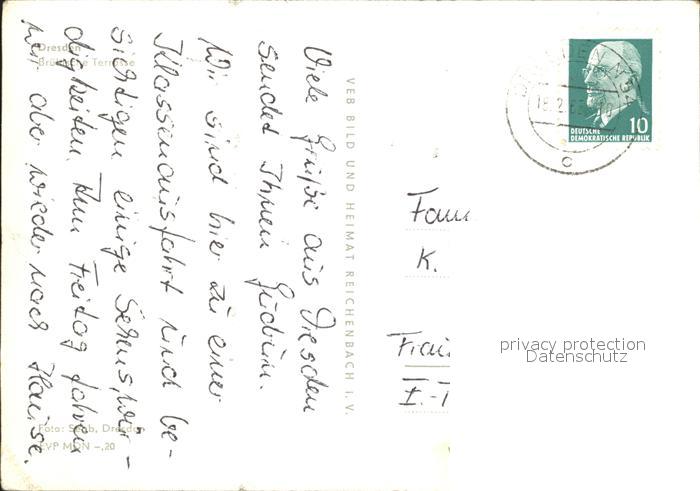 Dresden
Brühlsche Terrasse
Viele Grüße aus Dresden
sendet Ihnen Gudrun.
Wir sind hier zu einer
Klassenausfahrt und be-
sichtigen einige Sehenswür-
digkeiten. Am Freitag fahren
wir aber wieder nach Hause.
Foto: Seeb, Dresden
EVP MDN -,20
VEB BILD UND HEIMAT REICHENBACH I. V.
DEUTSCHE
DEMOKRATISCHE REPUBLIK
10
18.2.
Fam
K.
privacy protection
Datenschutz